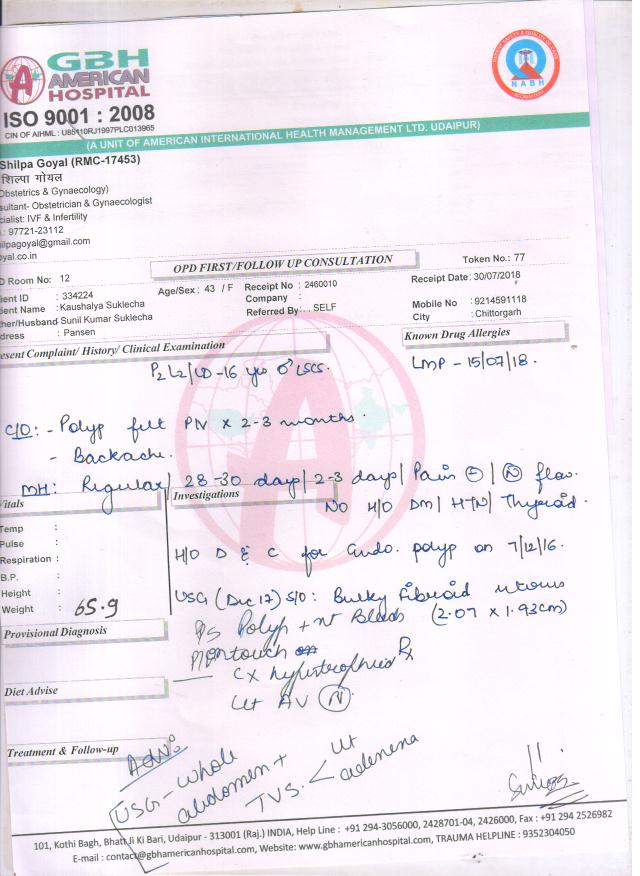 GBH
AMERICAN
HOSPITAL
ISO 9001 : 2008
CIN OF AIHML : U85110RJ1997PLC013965
NABH
(A UNIT OF AMERICAN INTERNATIONAL HEALTH MANAGEMENT LTD. UDAIPUR)
Shilpa Goyal (RMC-17453)
शिल्पा गोयल
Obstetrics & Gynaecology)
sultant- Obstetrician & Gynaecologist
cialist: IVF & Infertility
.: 97721-23112
ilpagoyal@gmail.com
oyal.co.in
OPD FIRST/FOLLOW UP CONSULTATION
Token No.: 77
D Room No: 12
Age/Sex : 43 / F
Receipt No : 2460010
Receipt Date: 30/07/2018
ient ID : 334224
Company :
ient Name : Kaushalya Suklecha
Referred By: . . SELF
Mobile No : 9214591118
her/Husband Sunil Kumar Suklecha
City : Chittorgarh
dress : Pansen
esent Complaint/ History/ Clinical Examination
Known Drug Allergies
P2L2/LD-16 yrs ♂ LSCS.
LMP - 15/07/18.
C/O: - Polyp felt PV x 2-3 months.
- Backache.
MH: Regular/ 28-30 days/ 2-3 days/ Pain / (N) flow.
Vitals
Investigations
No H/O DM/ HTN/ Thyroid.
Temp :
Pulse :
Respiration :
B.P. :
Height :
Weight : 65.9
H/O D & C for Endo. polyp on 7/12/16.
USG (Dec 17) S/O: Bulky Fibroid uterus
(2.07 x 1.93cm)
Provisional Diagnosis
P/S Polyp + nt Bleeds
on touch
Cx hypertrophied
Ut AV (N)
Diet Advise
Treatment & Follow-up
Adv:
USG - whole
abdomen +
TVS. < Ut
adenexa
101, Kothi Bagh, Bhatt Ji Ki Bari, Udaipur - 313001 (Raj.) INDIA, Help Line : +91 294-3056000, 2428701-04, 2426000, Fax : +91 294 2526982
E-mail : contact@gbhamericanhospital.com, Website: www.gbhamericanhospital.com, TRAUMA HELPLINE : 9352304050